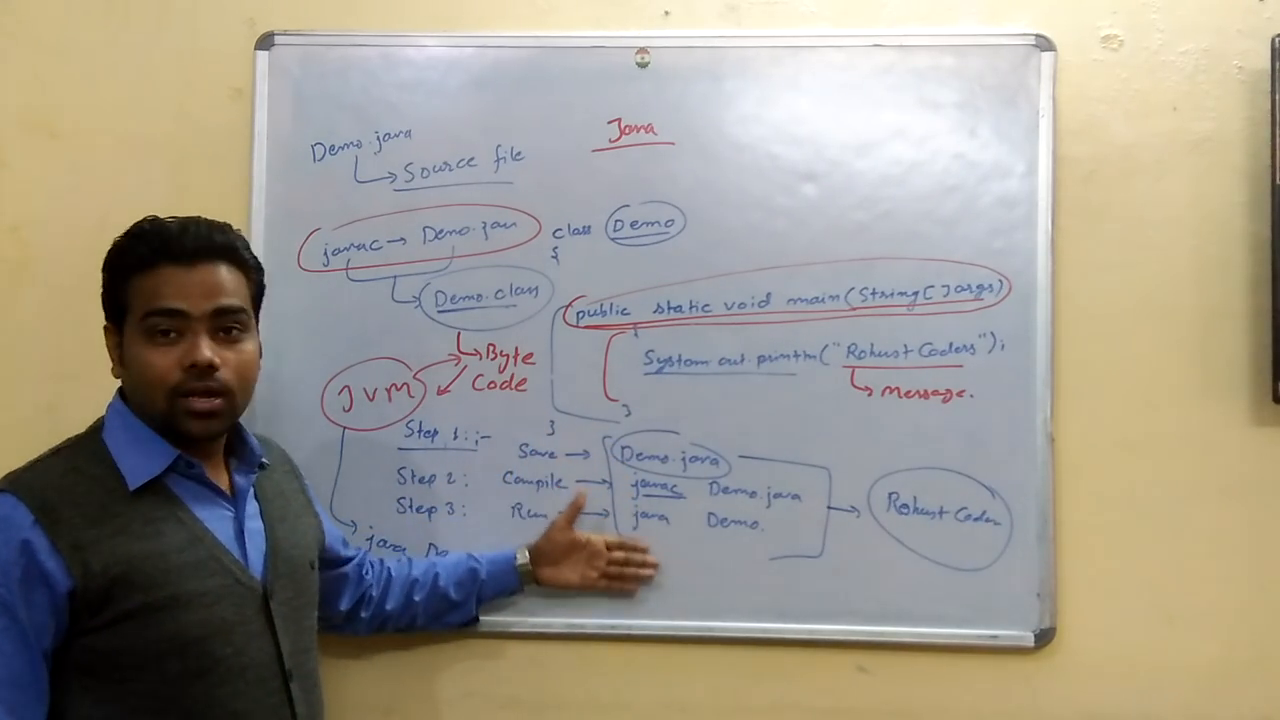 Java
Demo.java
Source file
javac → Demo.java
Demo.class
Byte
Code
JVM
class Demo
{
public static void main(String[] args)
{
System.out.println("Robust Coders");
Message.
}
}
Step 1:- Save → Demo.java
Step 2: Compile → javac Demo.java
Step 3: Run → java Demo.
Robust Coders
java